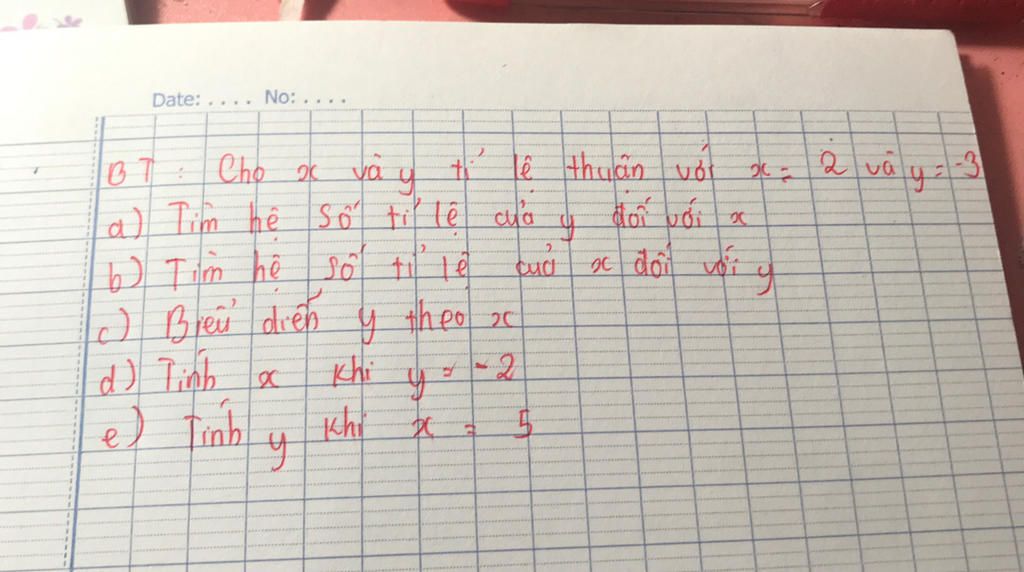 Date: .... No: ....
BT : Cho x và y tỉ lệ thuận với x = 2 và y = -3
a) Tìm hệ số tỉ lệ của y đối với x
b) Tìm hệ số tỉ lệ của x đối với y
c) Biểu diễn y theo x
d) Tính x khi y = -2
e) Tính y khi x = 5